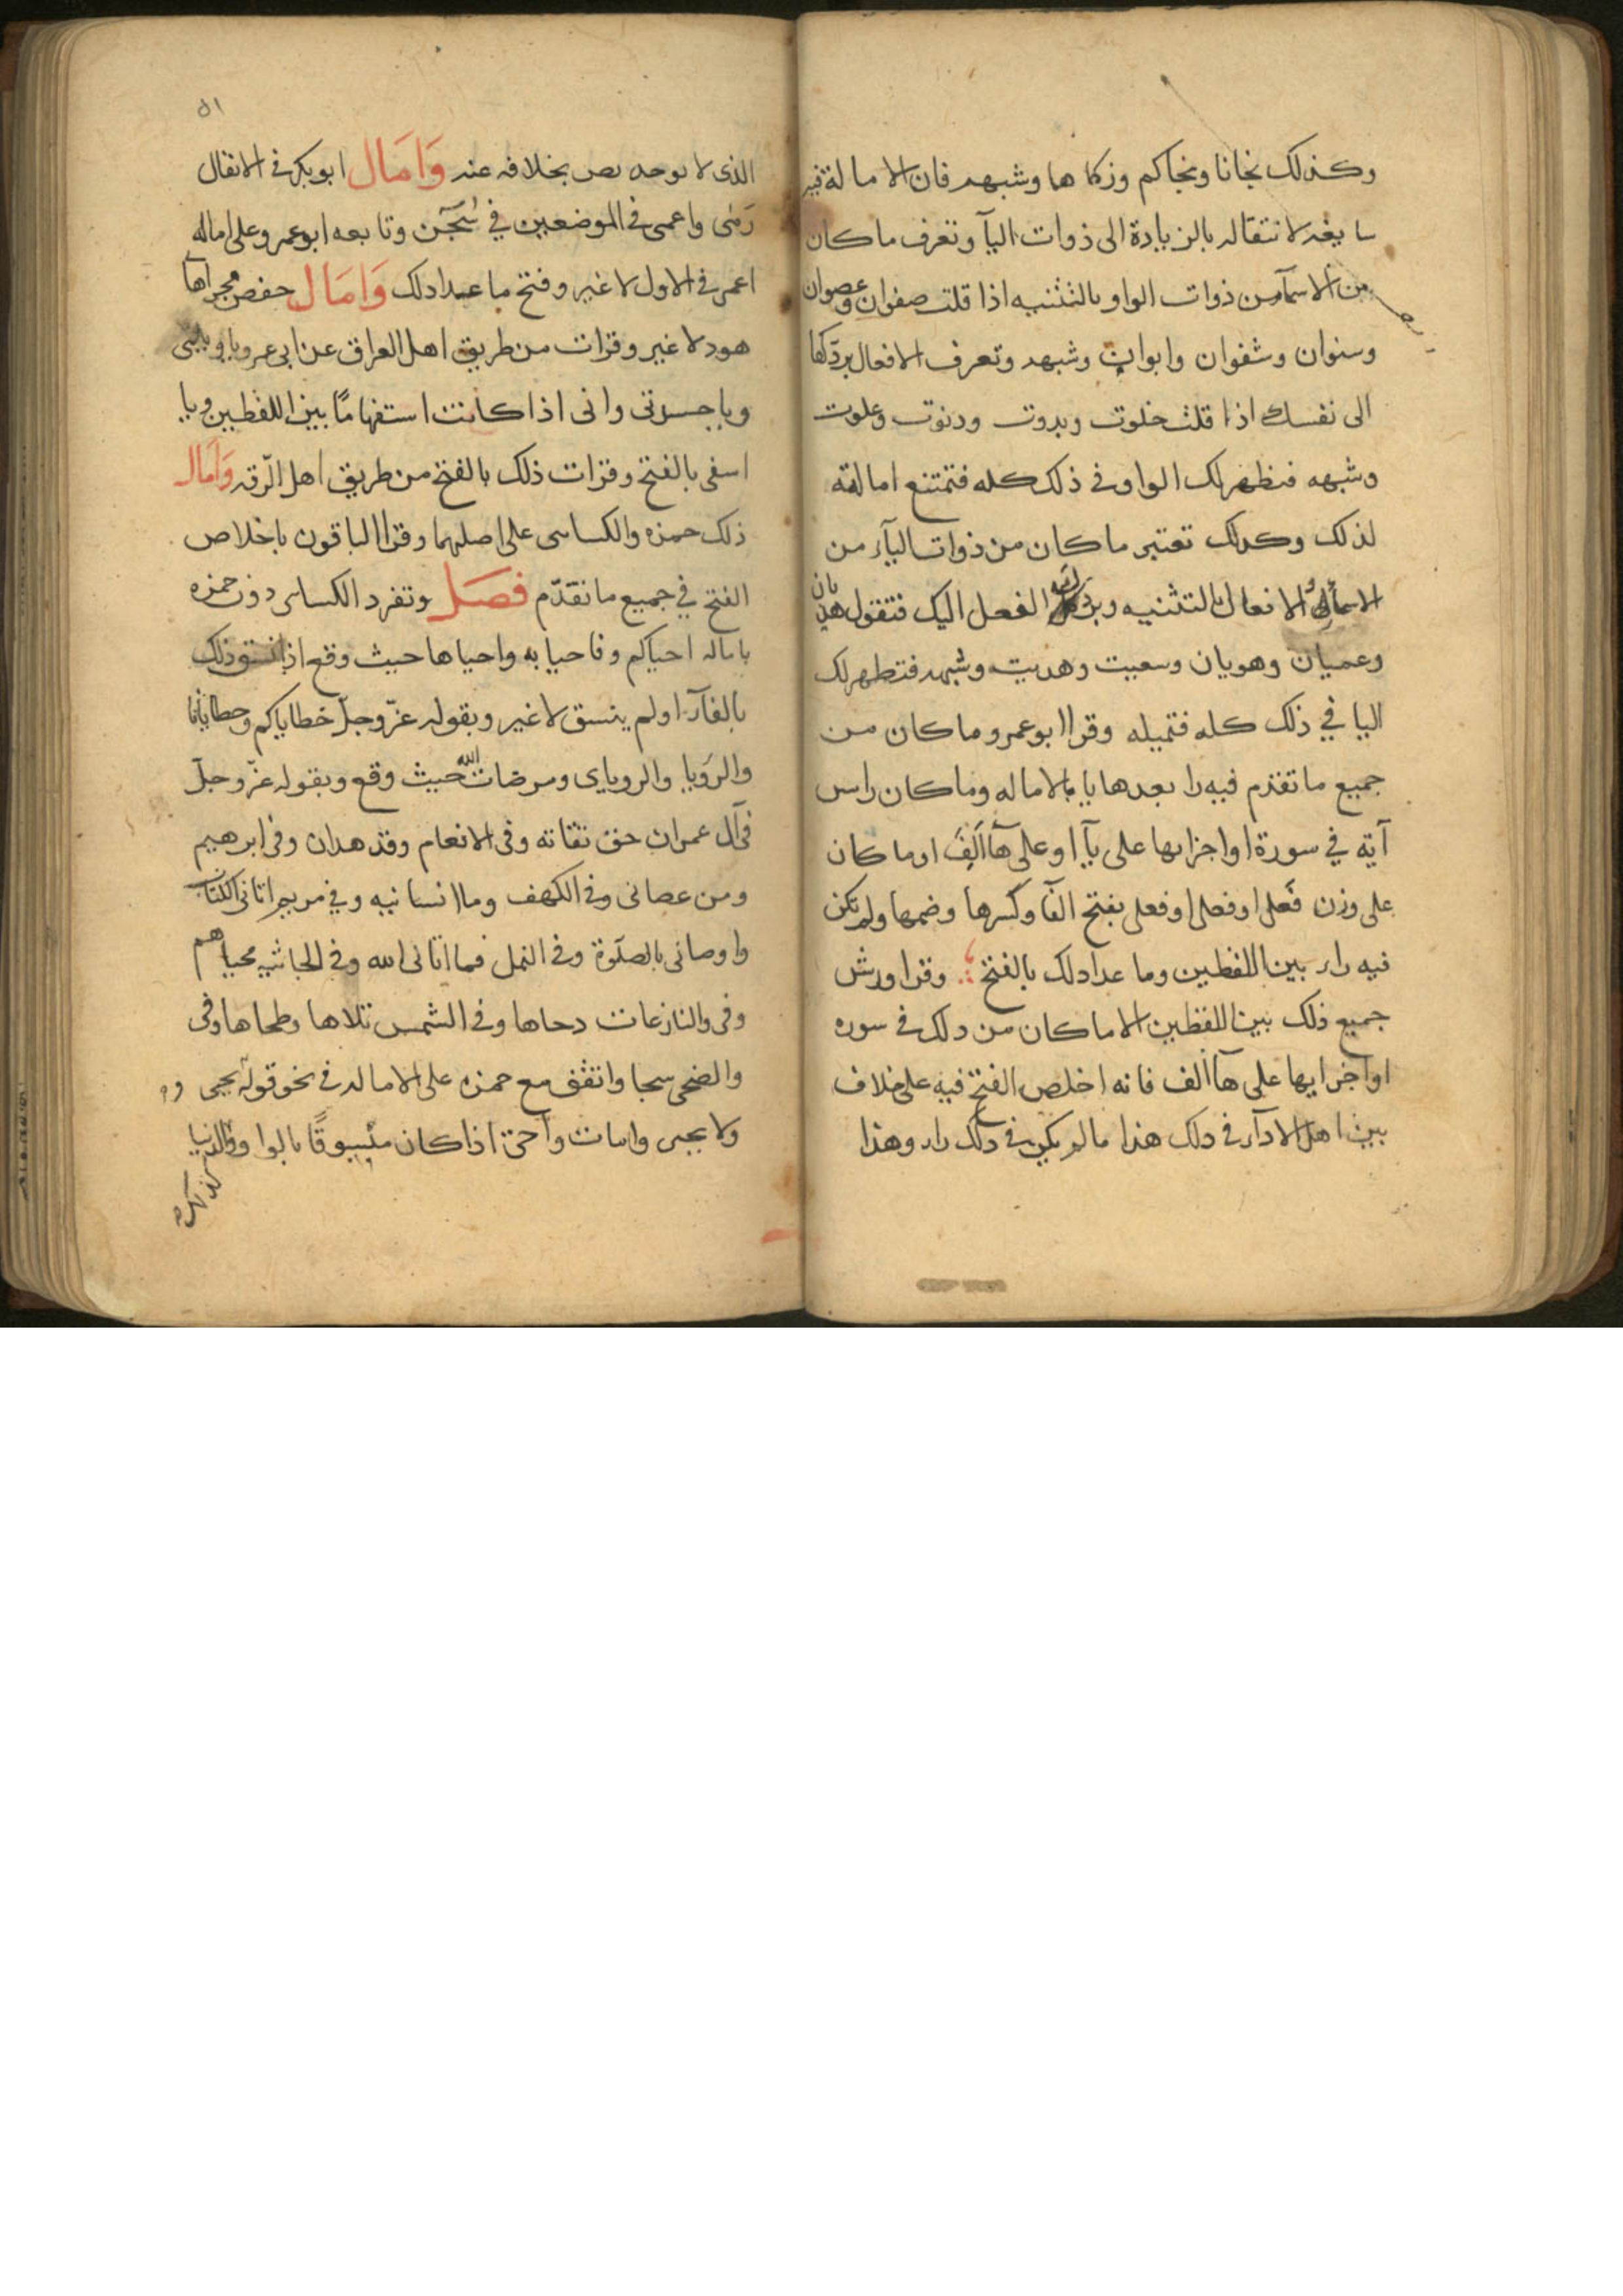 وكذلك نجانا ونجاكم وزكاها وشبهه فان الامالة فيه
سايغه لانتقاله بالزيادة الى ذوات اليآ وتعرف ماكان
من الاسمآ من ذوات الواو بالتثنيه اذا قلت صفوان وعصوان
وسنوان وشفوان وابوان وشبهه وتعرف الافعال بردكها
الى نفسك اذا قلت خلوت وبدوت ودنوت وعلوت
وشبهه فتظهر لك الواو فى ذلك كله فتمتنع امالته
لذلك وكدلك تعتبر ماكان من ذوات اليآء من
الاسمآء والافعال بالتثنيه وبردك الفعل اليك فتقول هديان
وعميان وهويان وسعيت وهديت وشبهه فتظهر لك
اليا في ذلك كله فتميله وقرا ابو عمرو ماكان من
جميع ماتقدم فيه را بعدها يا بالاماله وماكان راس
آية في سورة اواخرايها على يآ او على هآ الف او ماكان
على وزن فعلى او فعلى او فعلى بفتح الفآ وكسرها وضمها ولم تكن
فيه راء بين اللفظين وما عدا دلك بالفتح وقرا ورش
جميع ذلك بين اللفظين الا ماكان من دلك في سوره
اواخرايها على هآ الف فانه اخلص الفتح فيه على خلاف
بين اهل الادآء في دلك هذا مالم يكن في دلك راء وهذا
٥١
الذى لا يوجد نص بخلافه عنه وَامَال ابوبكر في الانفال
رَمى واعمى في الموضعين في سُبحَن وتابعه ابو عمرو على اماله
اعمى في الاول لاغير وفتح ما عدا دلك وَامَال حفص مجراها
هود لاغير وقرات من طريق اهل العراق عن ابى عمرو يا ويلتى
ويا حسرتى وانى اذا كانت استفهامًا بين اللفظين ويا
اسفى بالفتح وقرات ذلك بالفتح من طريق اهل الرّقه وَامَال
ذلك حمزه والكساىى على اصلهما وقرا الباقون باخلاص
الفتح في جميع ماتقدّم فصَل وتفرد الكساىى دون حمزه
باماله احياكم وفاحيا به واحياها حيث وقع اذا نسق ذلك
بالفآء او لم ينسق لاغير وبقوله عزّ وجلّ خطاياكم وخطايانا
والرويا والروياى ومرضات الله حيث وقع وبقوله عزّ وجلّ
في آل عمران حق تقاته وفى الانعام وقد هدان وفى ابرهيم
ومن عصانى وفى الكهف وما انسانيه وفي مريم اتانى الكتاب
واوصانى بالصلوة وفى النمل فما اتانى الله وفى الجاثيه محياهم
وفى والنازعات دحاها وفى الشمس تلاها وطحاها وفى
والضحى سجا واتفق مع حمزه على الاماله في نحو قوله يحيى
ولا يحيى وامات واحيى اذا كان منسوقًا بالواو والدنيا